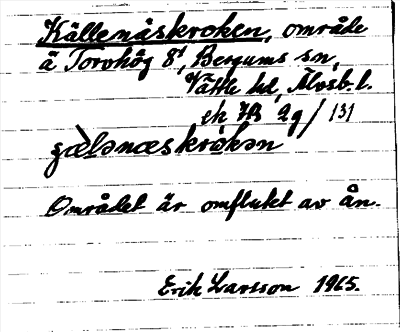 Källenäskroken, område
å Torvhög 8¹, Bergums sn,
Vättle hd, Älvsb. l.
ek 7B 2g/131
gæ̀lənæskrokən
Området är omflutet av ån.
Erik Larsson 1965.